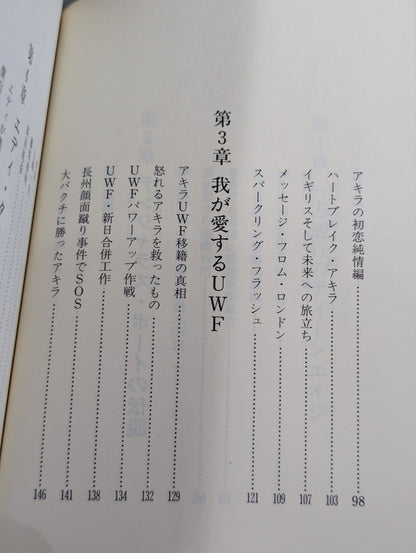 アキラの初恋純情編 98
ハートブレイク・アキラ 103
イギリスそして未来への旅立ち 107
メッセージ・フロム・ロンドン 109
スパークリング・フラッシュ 121
第3章 我が愛するUWF
アキラUWF移籍の真相 129
怒れるアキラを救ったもの 132
UWFパワーアップ作戦 134
UWF・新日合併工作 138
長州顔面蹴り事件でSOS 141
大バクチに勝ったアキラ 146